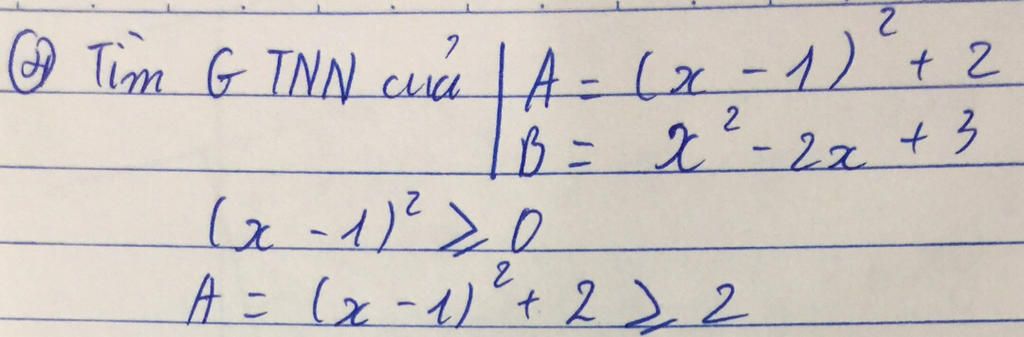 ② Tìm GTNN của | A = (x - 1)² + 2
B = x² - 2x + 3
(x - 1)² ⩾ 0
A = (x - 1)² + 2 ⩾ 2